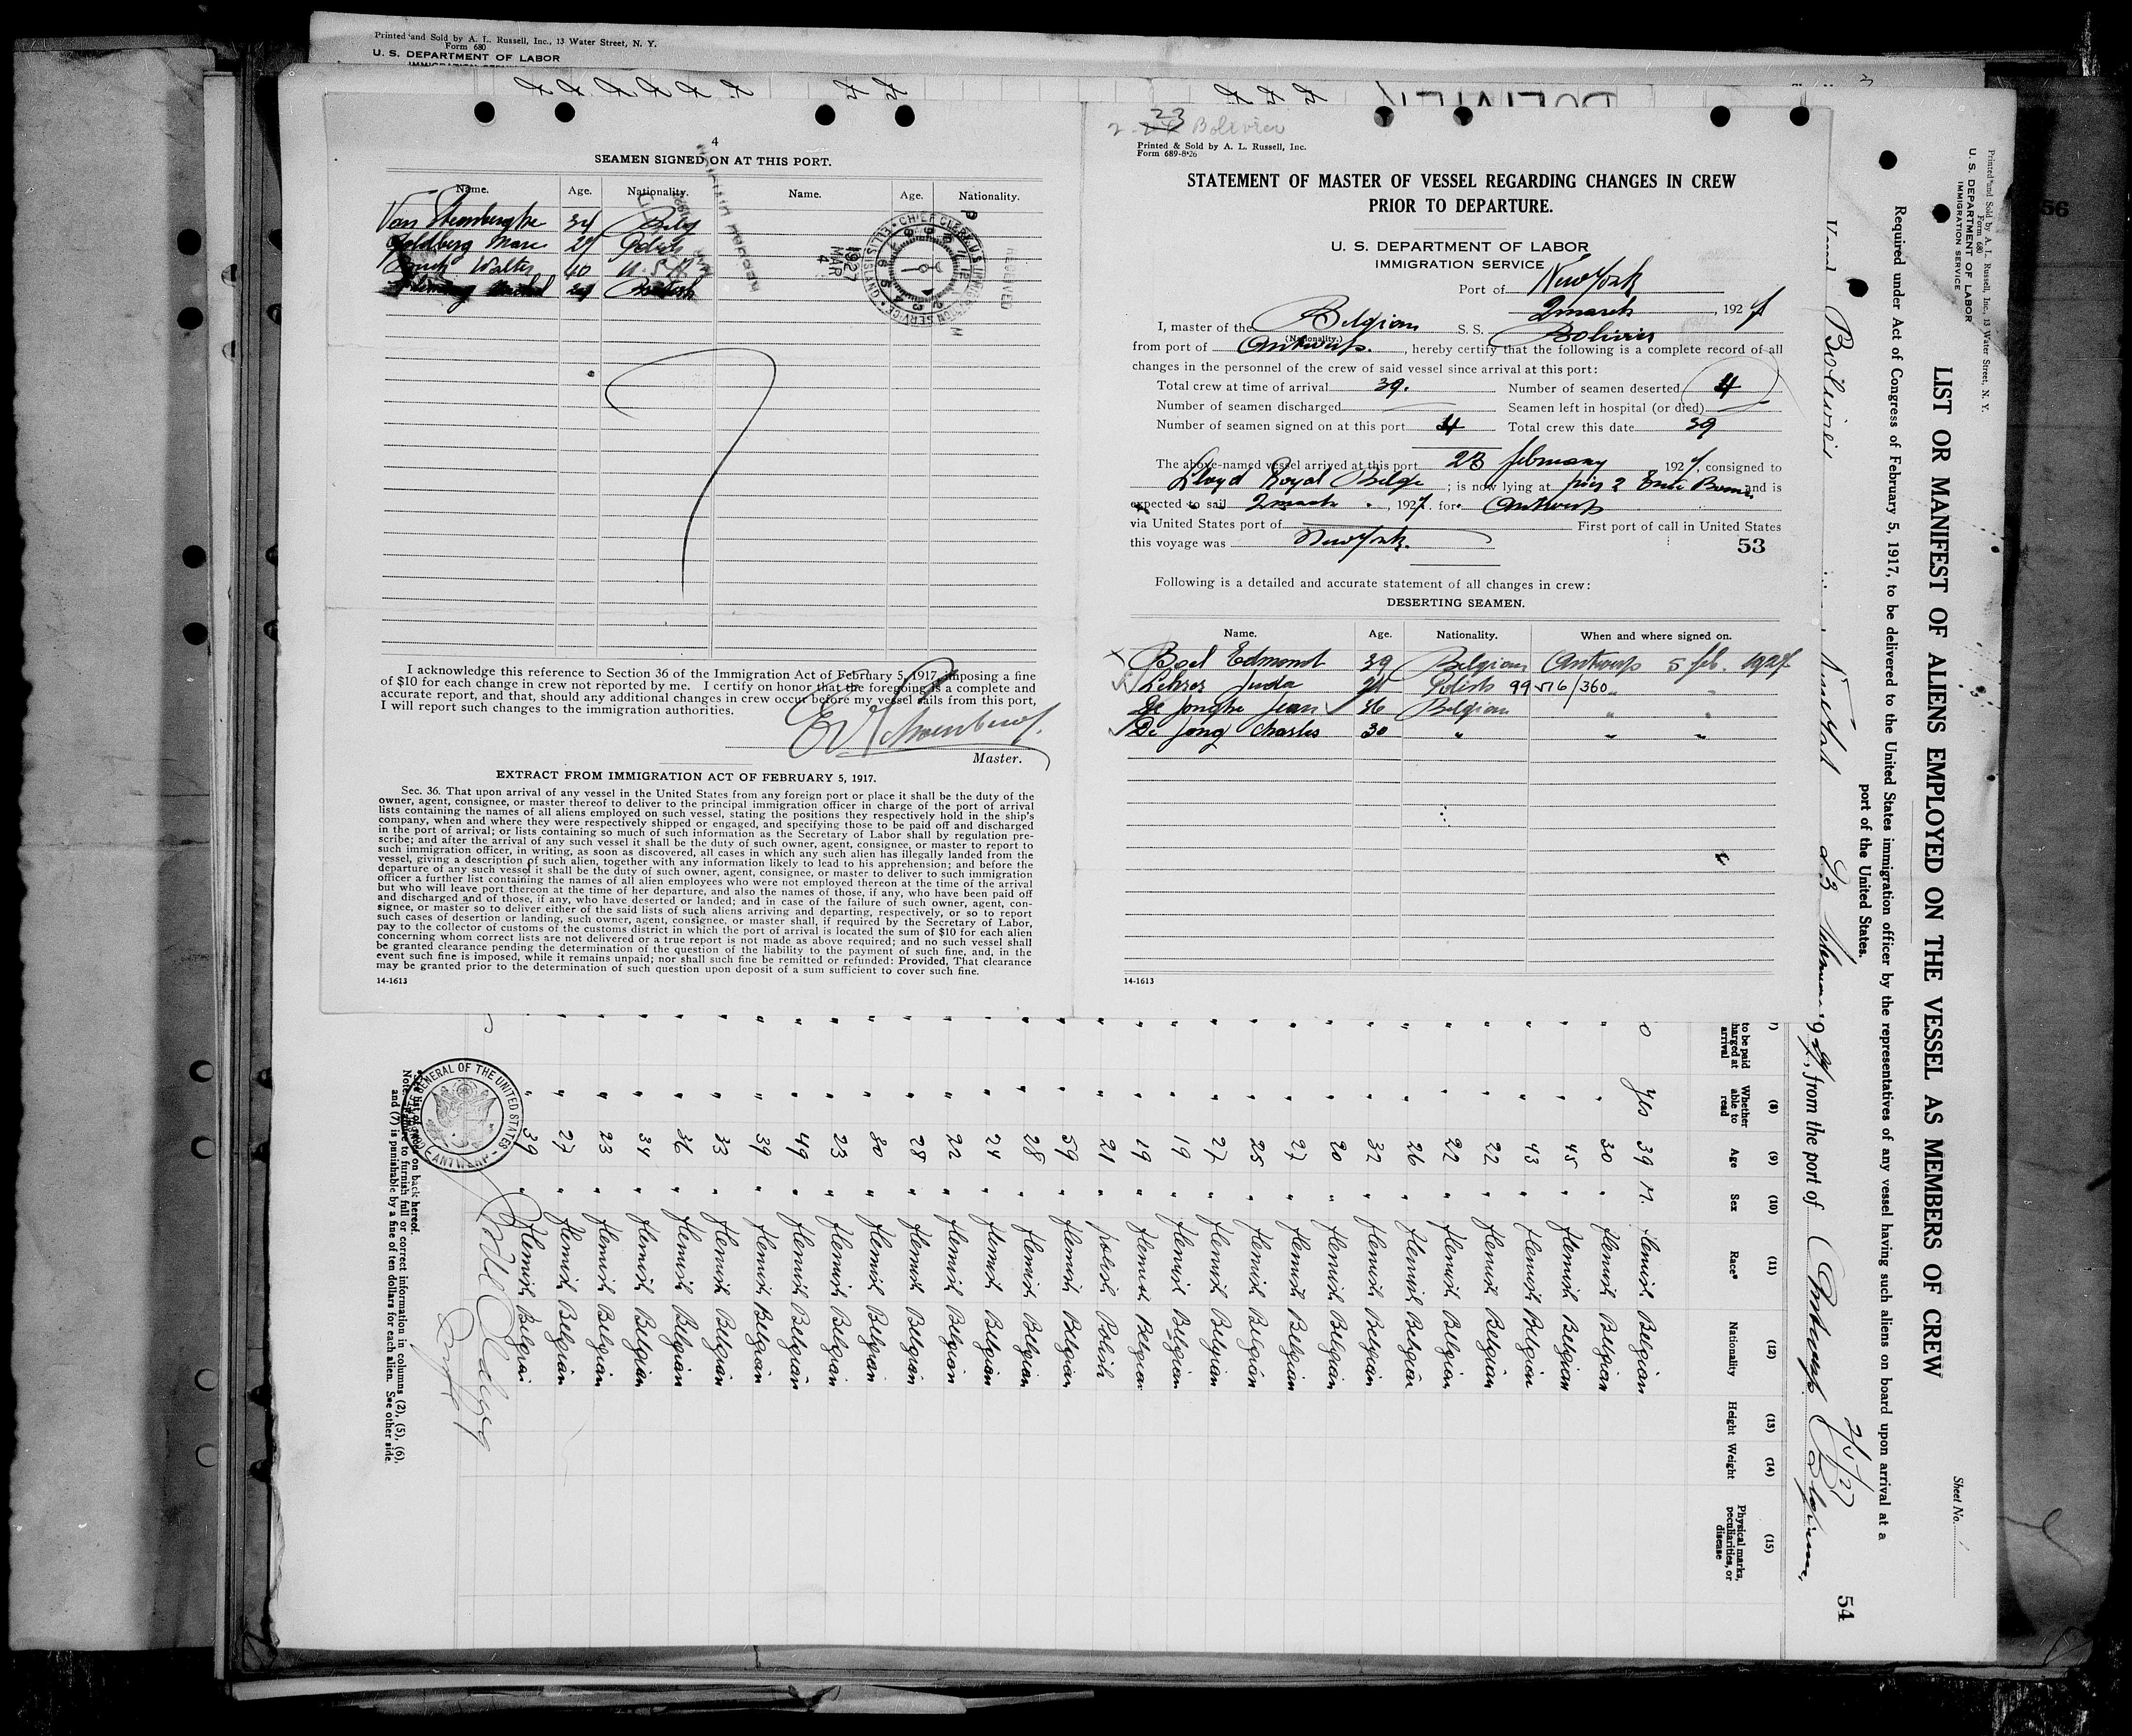 Printed and Sold by A. L. Russell, Inc., 13 Water Street, N. Y.
Form 680
U. S. DEPARTMENT OF LABOR
4
SEAMEN SIGNED ON AT THIS PORT.
Name. Age. Nationality. Name. Age. Nationality.
Van 34 Belg
Goldberg Marc
Walter 40 U.S.A.
RECEIVED
MAR 4 1927
CHIEF CLERK U.S. IMMIGRATION SERVICE ELLIS ISLAND
I acknowledge this reference to Section 36 of the Immigration Act of February 5, 1917, imposing a fine
of $10 for each change in crew not reported by me. I certify on honor that the foregoing is a complete and
accurate report, and that, should any additional changes in crew occur before my vessel sails from this port,
I will report such changes to the immigration authorities.
Master.
EXTRACT FROM IMMIGRATION ACT OF FEBRUARY 5, 1917.
Sec. 36. That upon arrival of any vessel in the United States from any foreign port or place it shall be the duty of the
owner, agent, consignee, or master thereof to deliver to the principal immigration officer in charge of the port of arrival
lists containing the names of all aliens employed on such vessel, stating the positions they respectively hold in the ship's
company, when and where they were respectively shipped or engaged, and specifying those to be paid off and discharged
in the port of arrival; or lists containing so much of such information as the Secretary of Labor shall by regulation pre-
scribe; and after the arrival of any such vessel it shall be the duty of such owner, agent, consignee, or master to report to
such immigration officer, in writing, as soon as discovered, all cases in which any such alien has illegally landed from the
vessel, giving a description of such alien, together with any information likely to lead to his apprehension; and before the
departure of any such vessel it shall be the duty of such owner, agent, consignee, or master to deliver to such immigration
officer a further list containing the names of all alien employees who were not employed thereon at the time of the arrival
but who will leave port thereon at the time of her departure, and also the names of those, if any, who have been paid off
and discharged and of those, if any, who have deserted or landed; and in case of the failure of such owner, agent, con-
signee, or master so to deliver either of the said lists of such aliens arriving and departing, respectively, or so to report
such cases of desertion or landing, such owner, agent, consignee, or master shall, if required by the Secretary of Labor,
pay to the collector of customs of the customs district in which the port of arrival is located the sum of $10 for each alien
concerning whom correct lists are not delivered or a true report is not made as above required; and no such vessel shall
be granted clearance pending the determination of the question of the liability to the payment of such fine, and, in the
event such fine is imposed, while it remains unpaid; nor shall such fine be remitted or refunded: Provided, That clearance
may be granted prior to the determination of such question upon deposit of a sum sufficient to cover such fine.
14-1613
23 Bolivier
Printed & Sold by A. L. Russell, Inc.
Form 689-8-26
STATEMENT OF MASTER OF VESSEL REGARDING CHANGES IN CREW
PRIOR TO DEPARTURE.
U. S. DEPARTMENT OF LABOR
IMMIGRATION SERVICE
Port of New York
2 march, 1927
I, master of the Belgian S. S. Bolivier
(Nationality.)
from port of Antwerp, hereby certify that the following is a complete record of all
changes in the personnel of the crew of said vessel since arrival at this port:
Total crew at time of arrival 39. Number of seamen deserted 4
Number of seamen discharged Seamen left in hospital (or died)
Number of seamen signed on at this port 4 Total crew this date 39
The above-named vessel arrived at this port 23 february 1927, consigned to
Lloyd Royal Belge; is now lying at pier 2 and is
expected to sail 2 march, 1927. for Antwerp
via United States port of First port of call in United States
this voyage was New York.
53
Following is a detailed and accurate statement of all changes in crew:
DESERTING SEAMEN.
Name. Age. Nationality. When and where signed on.
Boel Edmond 39 Belgian Antwerp 5 feb. 1927
Juda 21 Polish 99576/360 "
De Jonghe Jean 36 Belgian " "
De Jong Charles 30 " " "
14-1613
Printed and Sold by A. L. Russell, Inc., 13 Water Street, N. Y.
Form 680
U. S. DEPARTMENT OF LABOR
IMMIGRATION SERVICE
Sheet No.
LIST OR MANIFEST OF ALIENS EMPLOYED ON THE VESSEL AS MEMBERS OF CREW
Required under Act of Congress of February 5, 1917, to be delivered to the United States immigration officer by the representatives of any vessel having such aliens on board upon arrival at a
port of the United States.
2/5/27
54
Vessel Bolivier New York 23 February 27, from the port of Antwerp Belgium
(8) (9) (10) (11) (12) (13) (14) (15)
to be paid
Whether able to read Age Sex Race* Nationality Height Weight Physical marks, peculiarities, or disease
yes 39 M. flemish Belgian
" 30 " flemish Belgian
" 45 " flemish Belgian
" 43 " flemish Belgian
" 22 " flemish Belgian
" 22 " flemish Belgian
" 26 " flemish Belgian
" 32 " flemish Belgian
" 20 " flemish Belgian
" 27 " flemish Belgian
" 25 " flemish Belgian
" 27 " flemish Belgian
" 19 " flemish Belgian
" 19 " flemish Belgian
" 21 " polish Polish
" 59 " flemish Belgian
" 28 " flemish Belgian
" 24 " flemish Belgian
" 22 " flemish Belgian
" 28 " flemish Belgian
" 30 " flemish Belgian
" 23 " flemish Belgian
" 49 " flemish Belgian
" 39 " flemish Belgian
" 33 " flemish Belgian
" 36 " flemish Belgian
" 34 " flemish Belgian
" 23 " flemish Belgian
" 27 " flemish Belgian
" 39 " flemish Belgian
GENERAL OF THE UNITED STATES
ANTWERP
on back hereof.
to furnish full or correct information in columns (2), (5), (6),
and (7) is punishable by a fine of ten dollars for each alien. See other side.
56